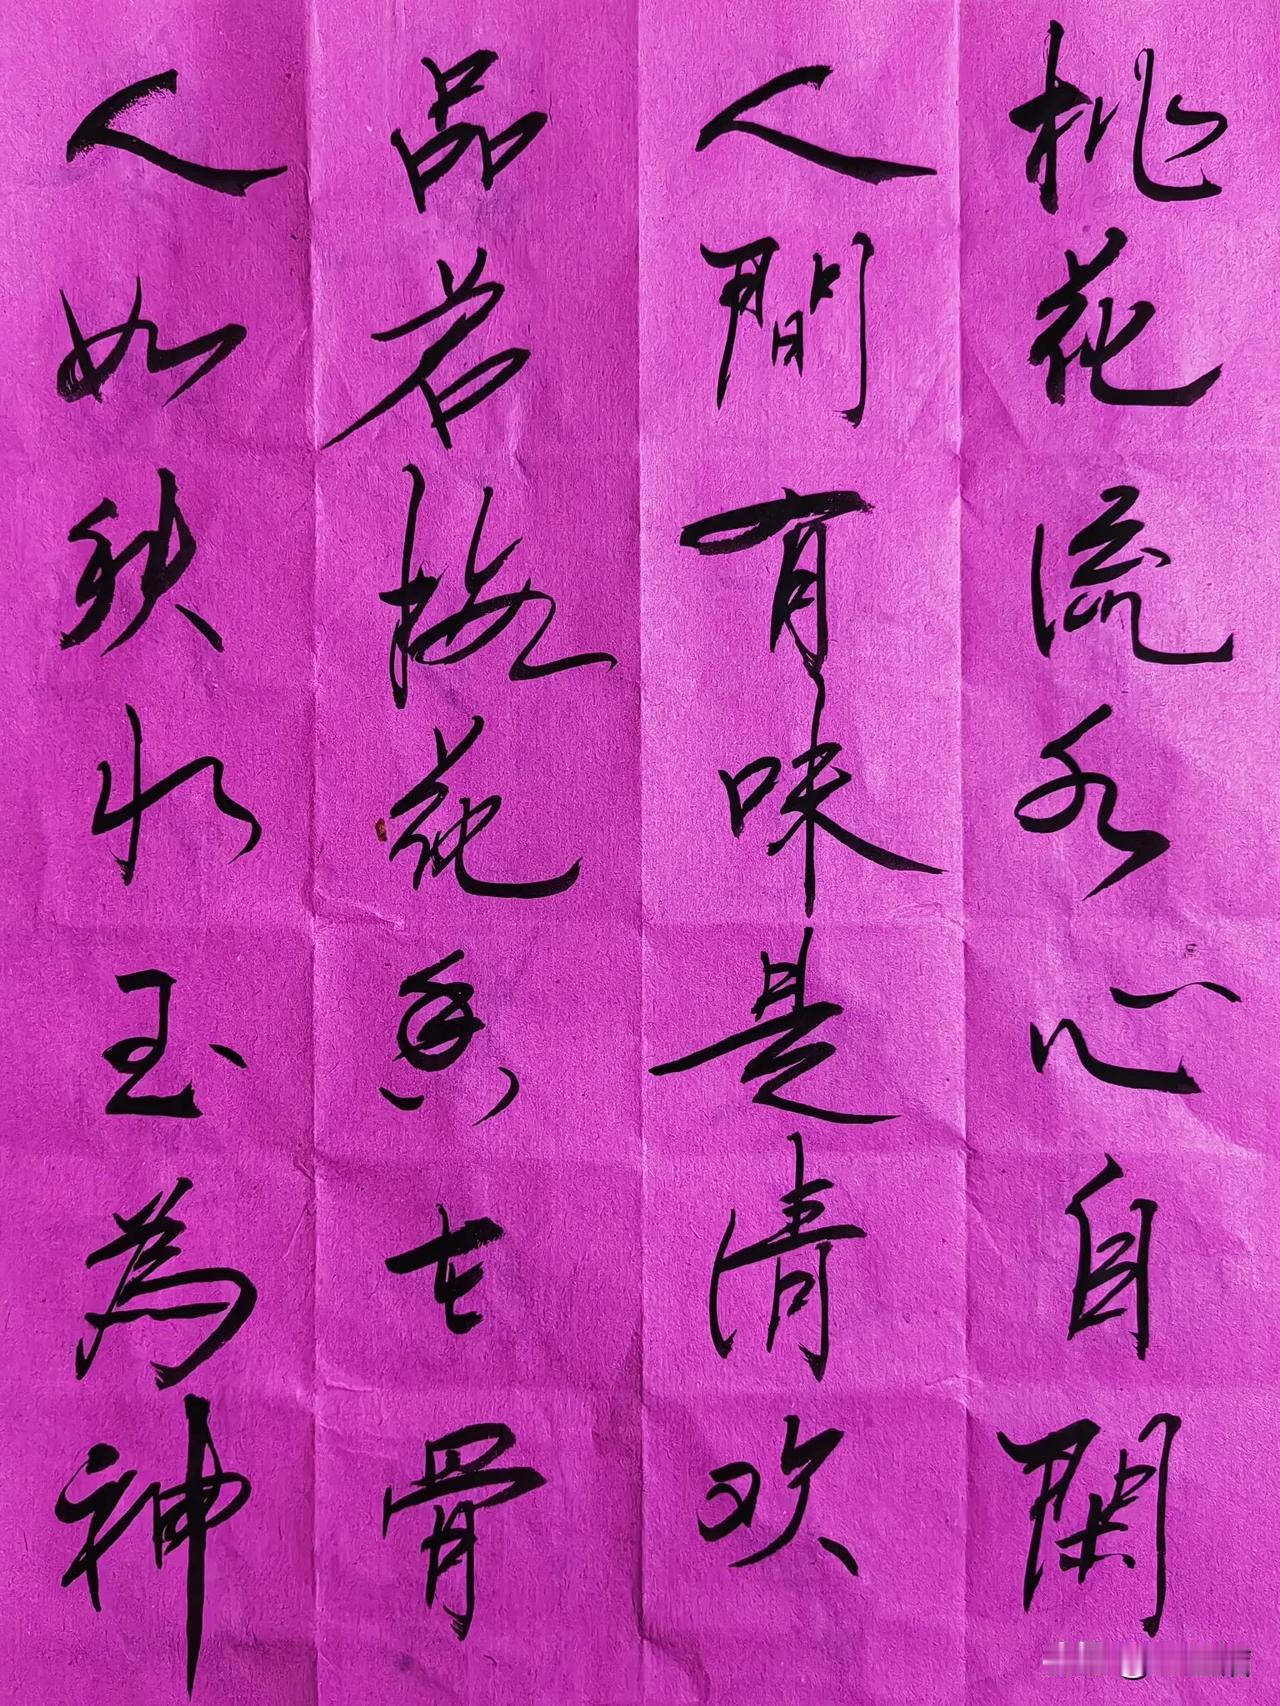 桃花流水心自閑
人間有味是清欢
品若梅花香在骨
人如秋水玉為神